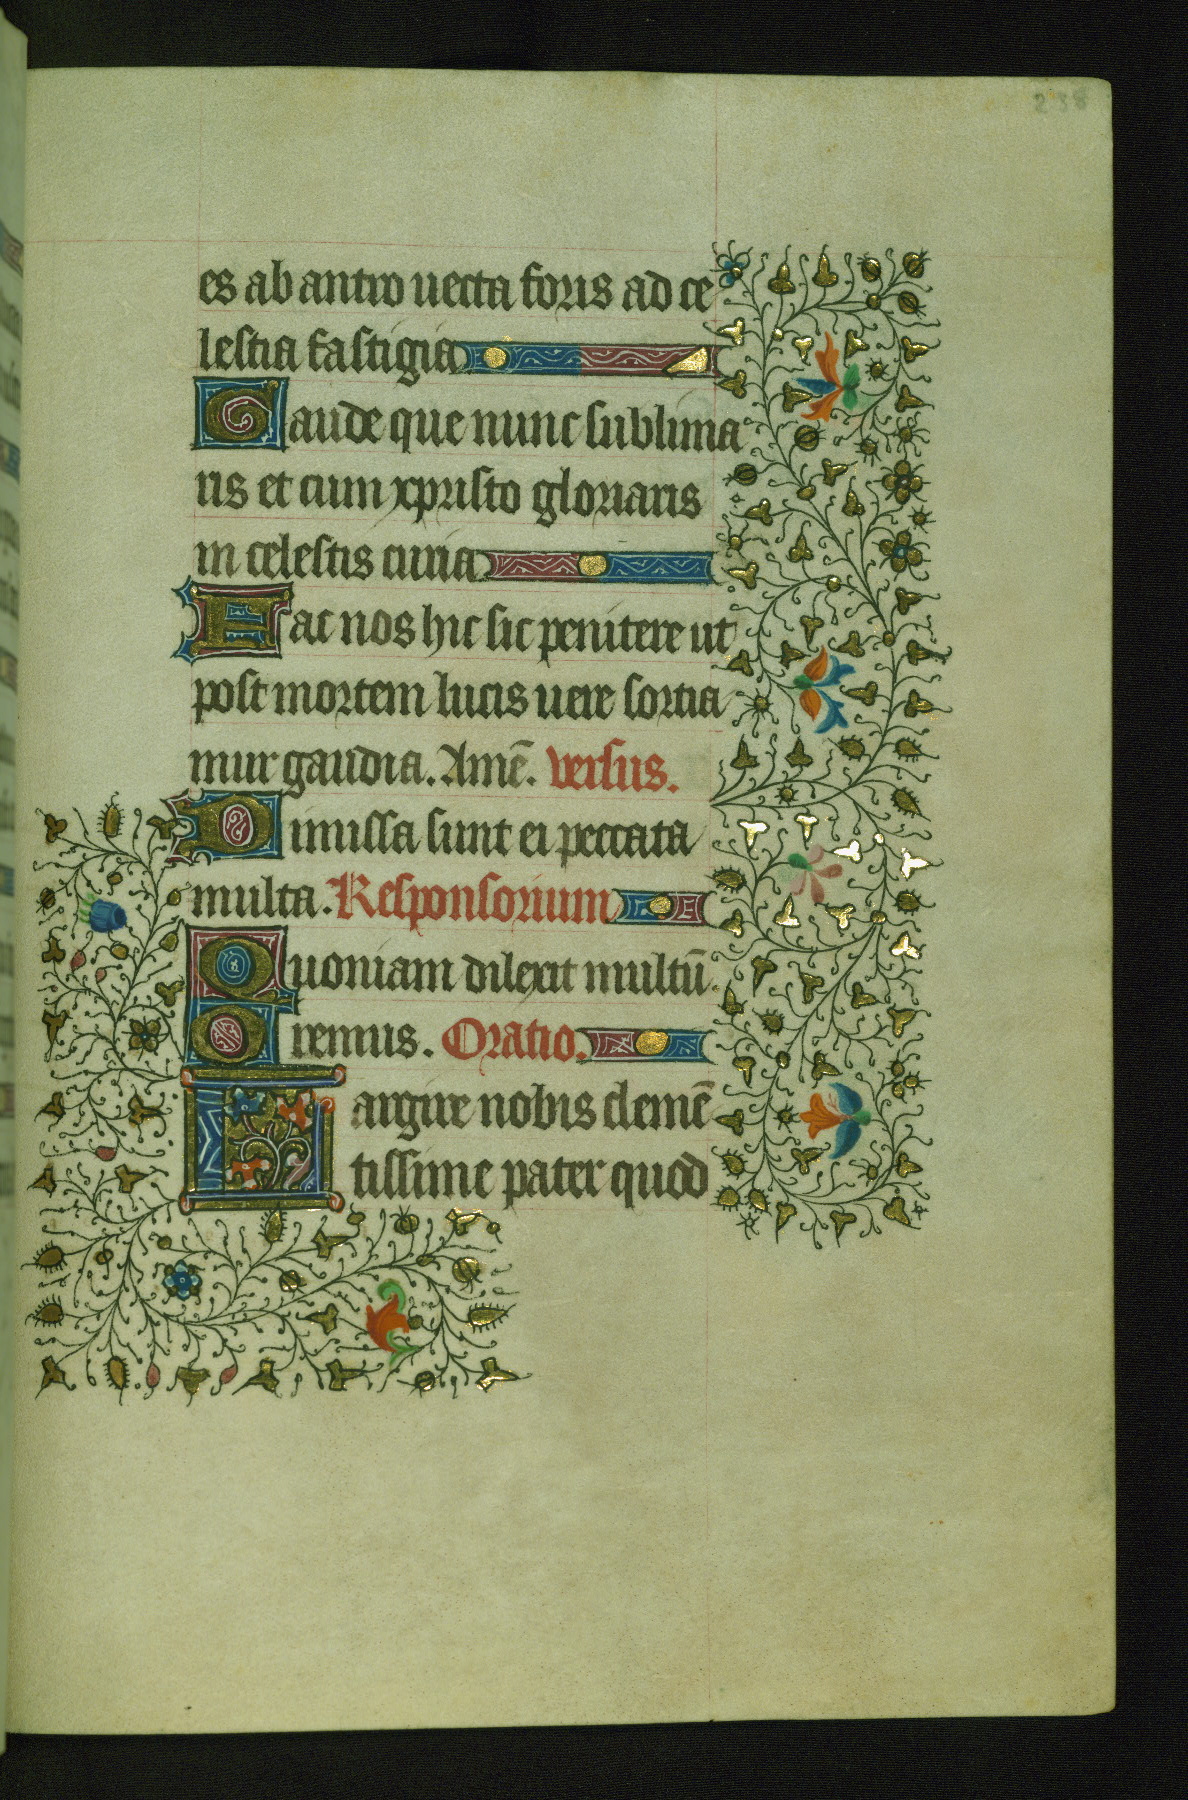 238
es ab antro uecta foris ad ce
lestia fastigia
Gaude que nunc sublima
ris et cum xpristo gloriaris
in celestis curia
Fac nos hic sic penitere ut
post mortem lucis uere sortia
mur gaudia. Amē. versus.
Dimissa sunt ei peccata
multa. Responsorium
Quoniam dilexit multū.
Oremus. Oratio.
Largire nobis clemē
tissime pater quod